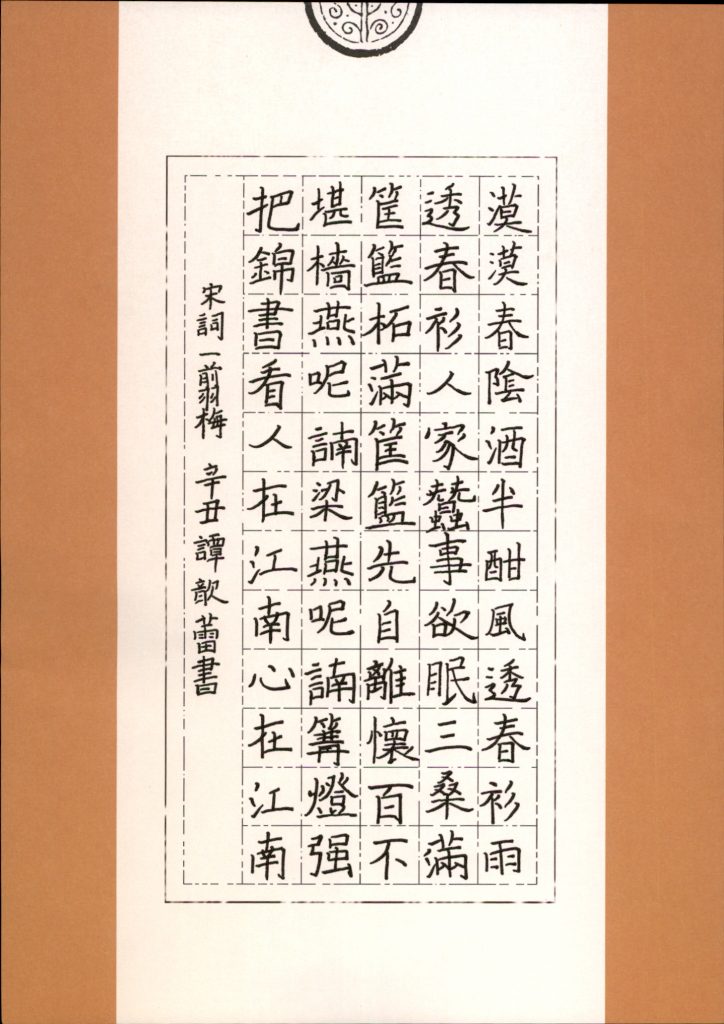 漠漠春陰酒半酣風透春衫雨
透春衫人家蠶事欲眠三桑滿
筐籃柘滿筐籃先自離懷百不
堪檣燕呢諵梁燕呢諵篝燈强
把錦書看人在江南心在江南
宋詞一剪梅 辛丑譚歆蕾書